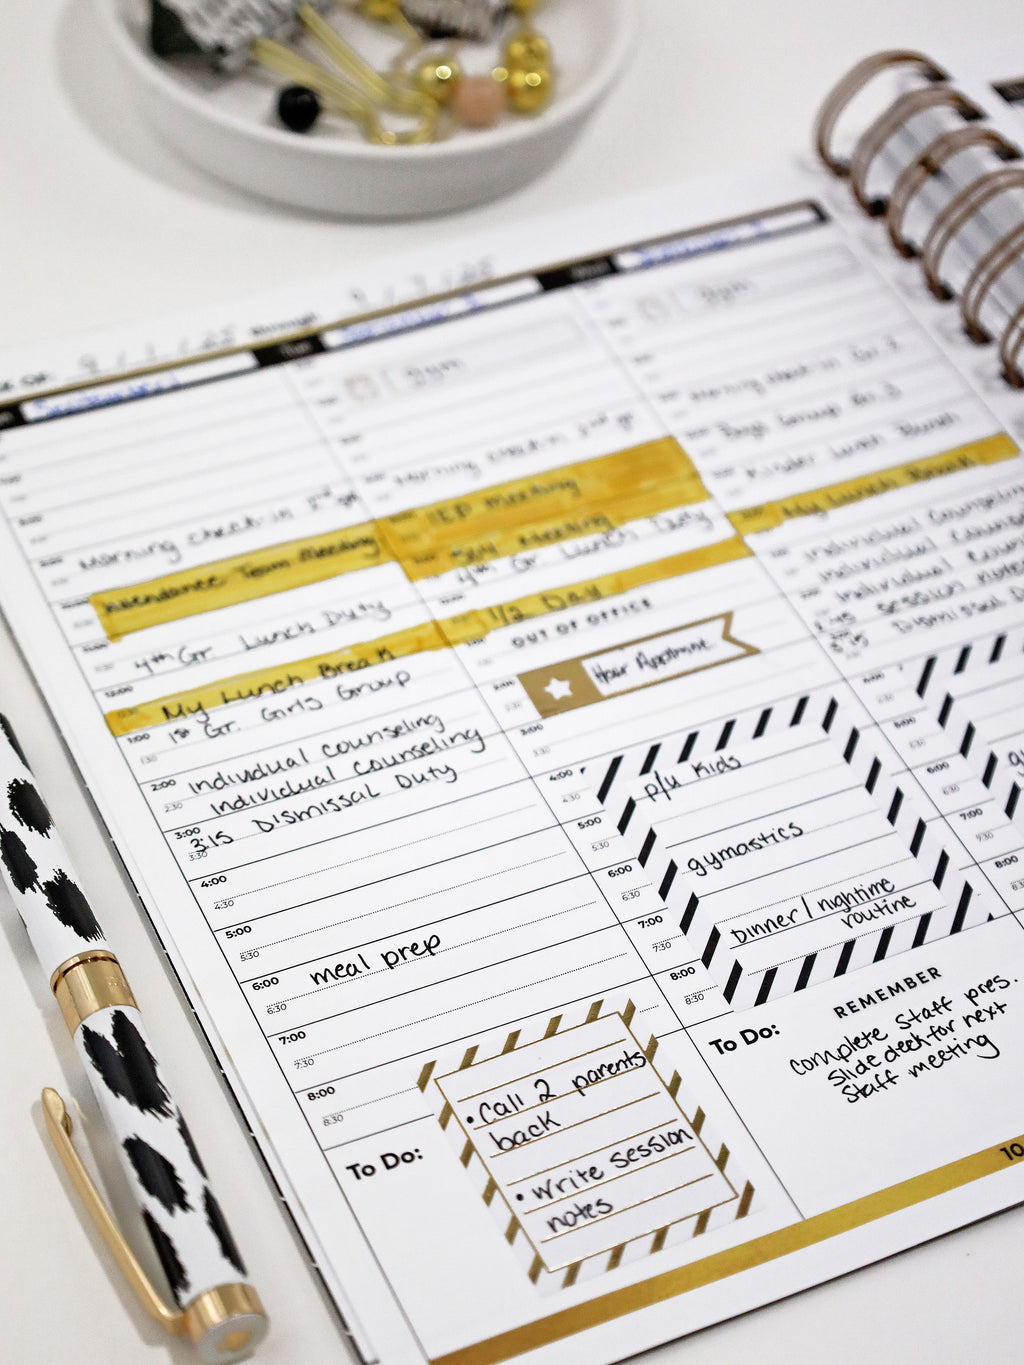 9 / 1 / 25 through 9 / 7 / 25
Tue
September 1
Morning check-in 3rd gr
Attendance Team Meeting
4th Gr. Lunch Duty
My Lunch Break
1st Gr. Girls Group
Individual counseling
Individual Counseling
3:15 Dismissal Duty
meal prep
12:00
1:00
1:30
2:00
2:30
3:00
3:30
4:00
4:30
5:00
5:30
6:00
6:30
7:00
7:30
8:00
8:30
To Do:
• Call 2 parents
back
• Write session
notes
gym
Morning check-in 3rd gr
IEP Meeting
504 Meeting
4th Gr. Lunch Duty
1/2 Day
OUT OF OFFICE
Hair Appointment
p/u kids
gymastics
Dinner/nightime
routine
2:00
2:30
3:00
3:30
4:00
4:30
5:00
5:30
6:00
6:30
7:00
7:30
8:00
8:30
To Do:
REMEMBER
complete staff pres.
slide deck for next
staff meeting
gym
Morning check-in Gr. 3
Boys Group Gr. 3
Kinder Lunch Bunch
My Lunch Break
Individual Counseling
Individual
Individual
session notes
3:15 Dismissal
4:00
5:00
6:00
6:30
7:00
7:30
8:00
8:30
10